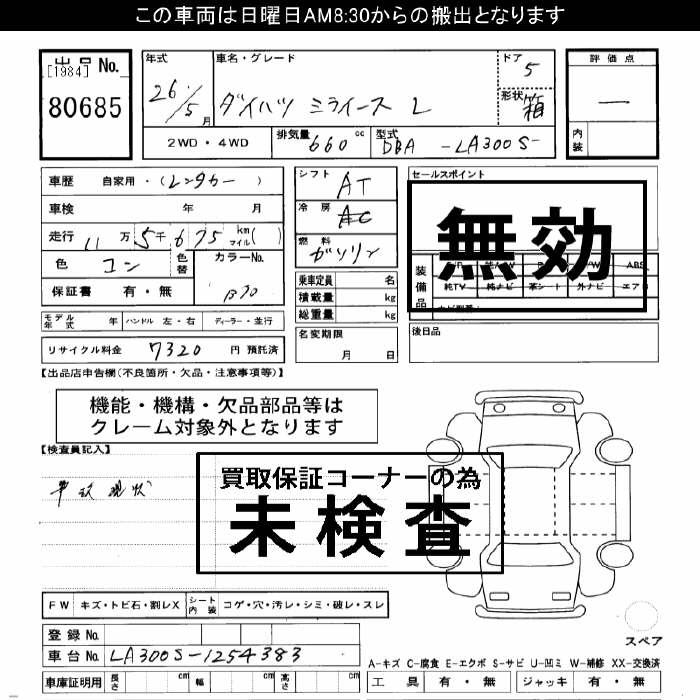 この車両は日曜日AM8:30からの搬出となります
出品 No.
[1984]
80685
年式
26/5月
車名・グレード
ダイハツ ミライース L
ドア
5
形状
箱
評価点
—
内装
2WD・4WD
排気量
660 cc
型式
DBA -LA300S-
車歴 自家用・(レンタカー)
車検 年 月
走行 11万5千675 km マイル( )
色 コン
色替
カラーNo.
B70
保証書 有・無
シフト AT
冷房 AC
燃料 ガソリン
乗車定員 名
積載量 kg
総重量 kg
名変期限
月 日
セールスポイント
無効
装備品
ABS
純TV 純ナビ 革シート 外ナビ エアB
後日品
モデル年式 年 ハンドル 左・右 ディーラー・並行
リサイクル料金 7320 円 預託済
【出品店申告欄(不良箇所・欠品・注意事項等)】
機能・機構・欠品部品等は
クレーム対象外となります
【検査員記入】
買取保証コーナーの為
未検査
現状
FW キズ・トビ石・割レX シート内装 コゲ・穴・汚レ・シミ・破レ・スレ
登録 No.
車台 No. LA300S-1254383
車庫証明用 長さ cm 幅 cm 高さ cm
スペア
A-キズ C-腐食 E-エクボ S-サビ U-凹ミ W-補修 XX-交換済
工具 有・無 ジャッキ 有・無